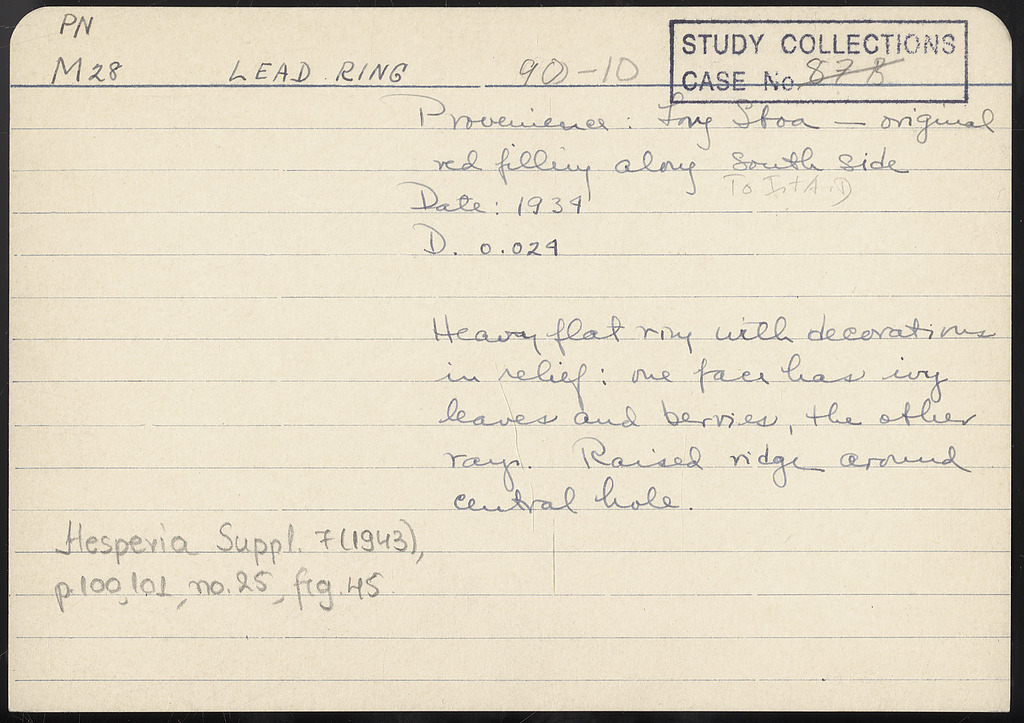 PN
M 28 LEAD RING 90-10
STUDY COLLECTIONS
CASE No. 878
Provenience: Long Stoa — original
red filling along south side
Date: 1934
D. 0.024
Heavy flat ring with decorations
in relief: one face has ivy
leaves and berries, the other
rays. Raised ridge around
central hole.
Hesperia Suppl. 7 (1943),
p.100,101, no.25, fig.45